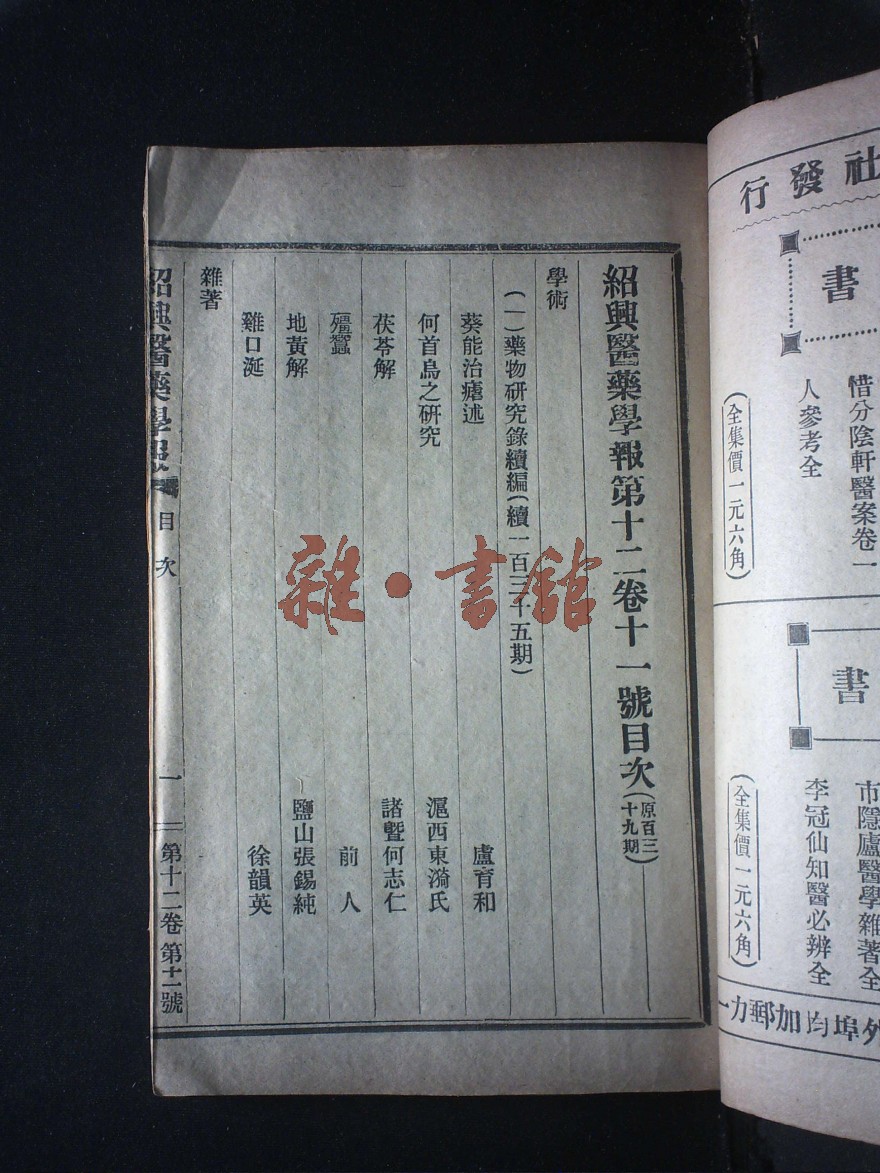 社發行
書
惜分陰軒醫案卷一
人參考全
(全集價一元六角)
書
市隱廬醫學雜著全
李冠仙知醫必辨全
(全集價一元六角)
外埠均加郵力一
紹興醫藥學報第十二卷十一號目次(原百三十九期)
學術
(一)藥物研究錄續編(續一百三十五期)
葵能治瘧述 盧育和
何首烏之研究 滬西東漪氏
茯苓解 諸暨何志仁
殭蠶 前人
地黃解 鹽山張錫純
雞口涎 徐韻英
雜著
紹興醫藥學報 目次 一 第十二卷第十一號
雜·書館